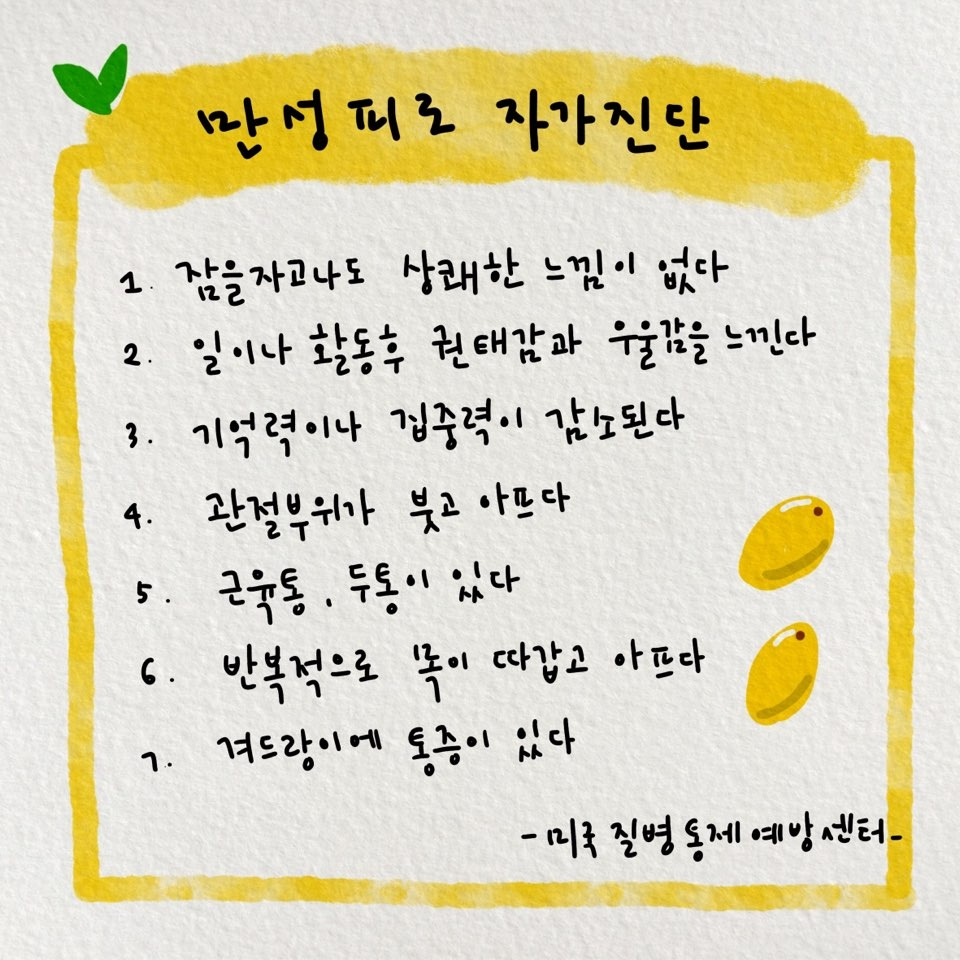 만성피로 자가진단
1. 잠을자고나도 상쾌한 느낌이 없다
2. 일이나 활동후 권태감과 우울감을 느낀다
3. 기억력이나 집중력이 감소된다
4. 관절부위가 붓고 아프다
5. 근육통, 두통이 있다
6. 반복적으로 목이 따갑고 아프다
7. 겨드랑이에 통증이 있다
-미국 질병통제예방센터-